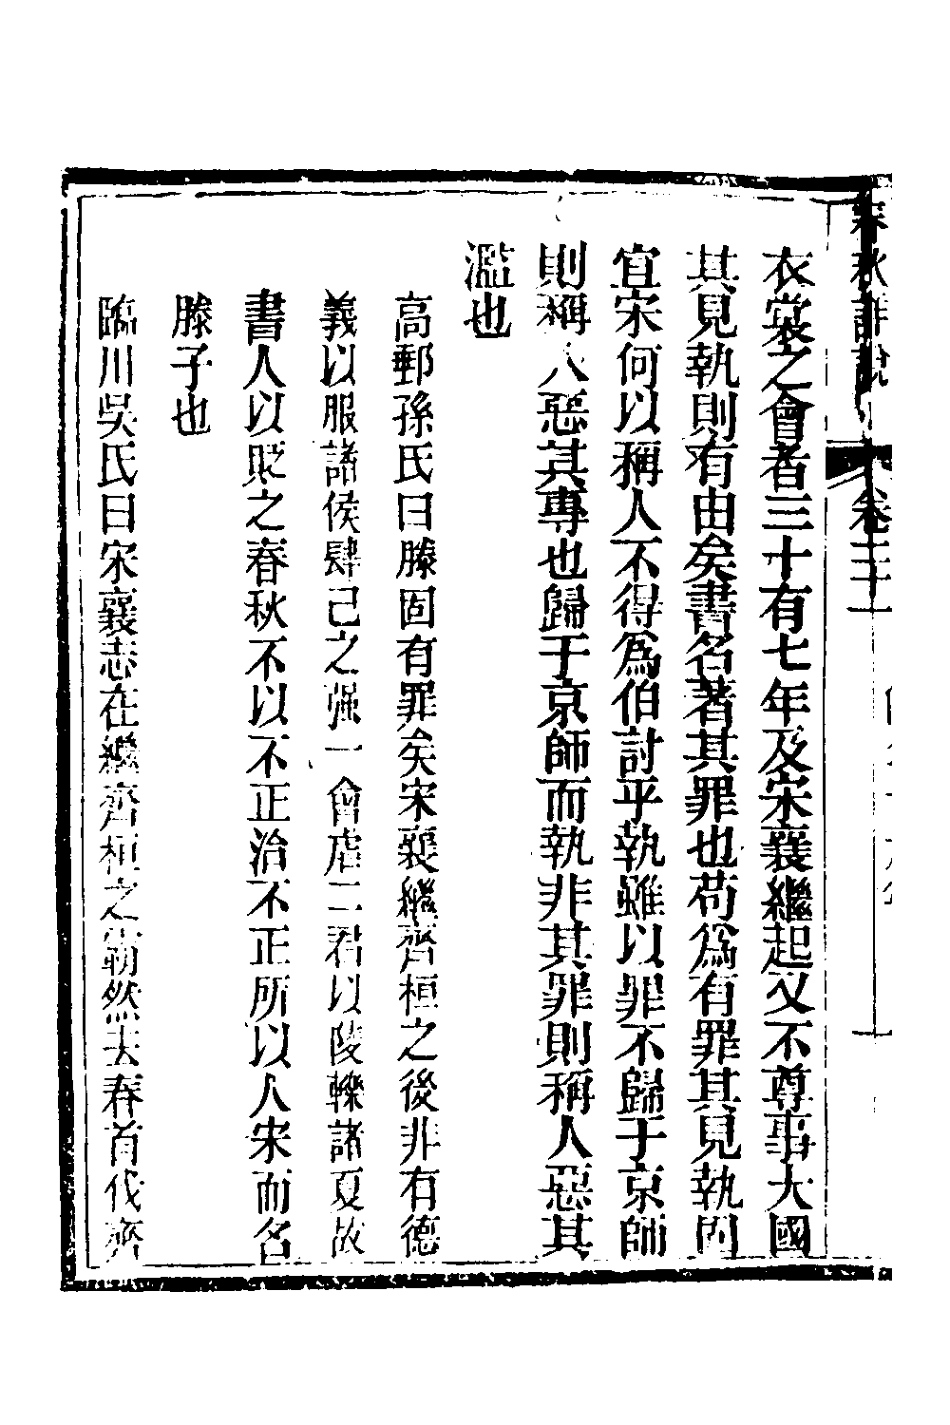 春秋詳說 卷三十一
衣裳之會者三十有七年及宋襄繼起又不尊事大國
其見執則有由矣書名著其罪也苟爲有罪其見執固
宜宋何以稱人不得爲伯討乎執雖以罪不歸于京師
則稱人惡其專也歸于京師而執非其罪則稱人惡其
濫也
高郵孫氏曰滕固有罪矣宋襄繼齊桓之後非有德
義以服諸侯肆己之强一會虐二君以陵轢諸夏故
書人以貶之春秋不以不正治不正所以人宋而名
滕子也
臨川吳氏曰宋襄志在繼齊桓之霸然去春首伐齊